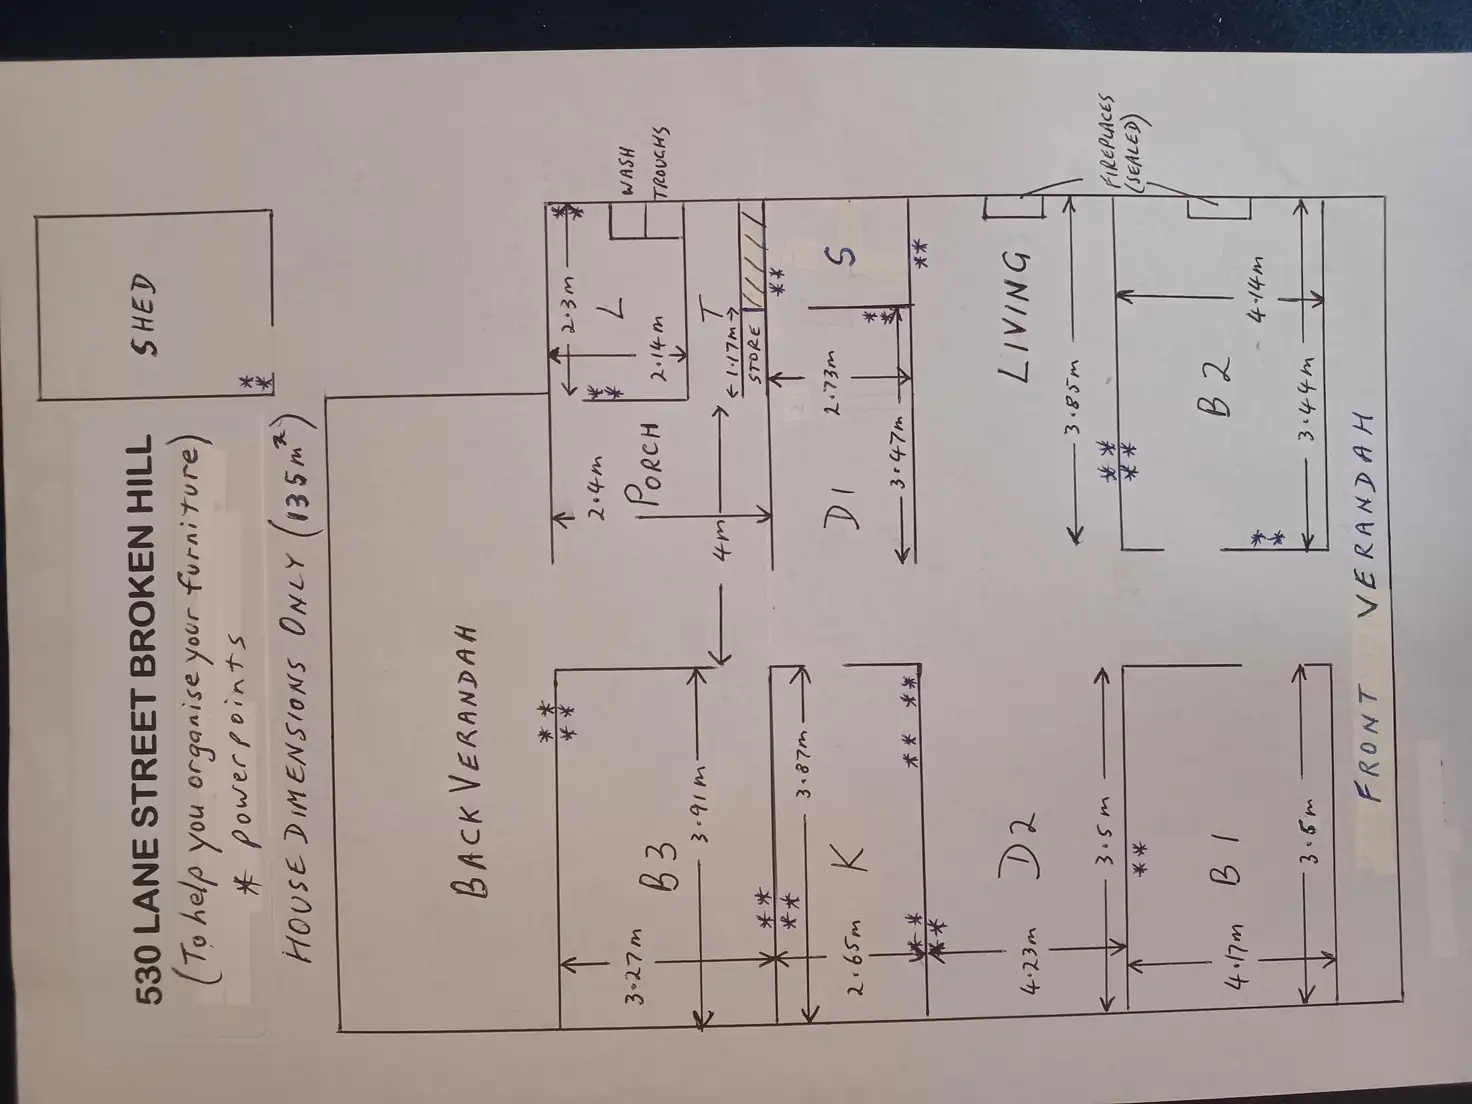 530 LANE STREET BROKEN HILL
(To help you organise your furniture)
* powerpoints
HOUSE DIMENSIONS ONLY (135m²)
SHED
**
BACK VERANDAH
** **
3.27m
B3
3.91m
**
2.4m
PORCH
4m
**
2.3m
L
2.14m
**
WASH
TROUGHS
T
1.17m
STORE
**
3.87m
2.65m
K
**
** **
**
D1
2.73m
3.47m
**
**
S
**
4.23m
D2
3.5m
**
LIVING
3.85m
FIREPLACES
(SEALED)
**
**
B1
4.17m
3.5m
**
B2
4.14m
3.44m
**
FRONT VERANDAH